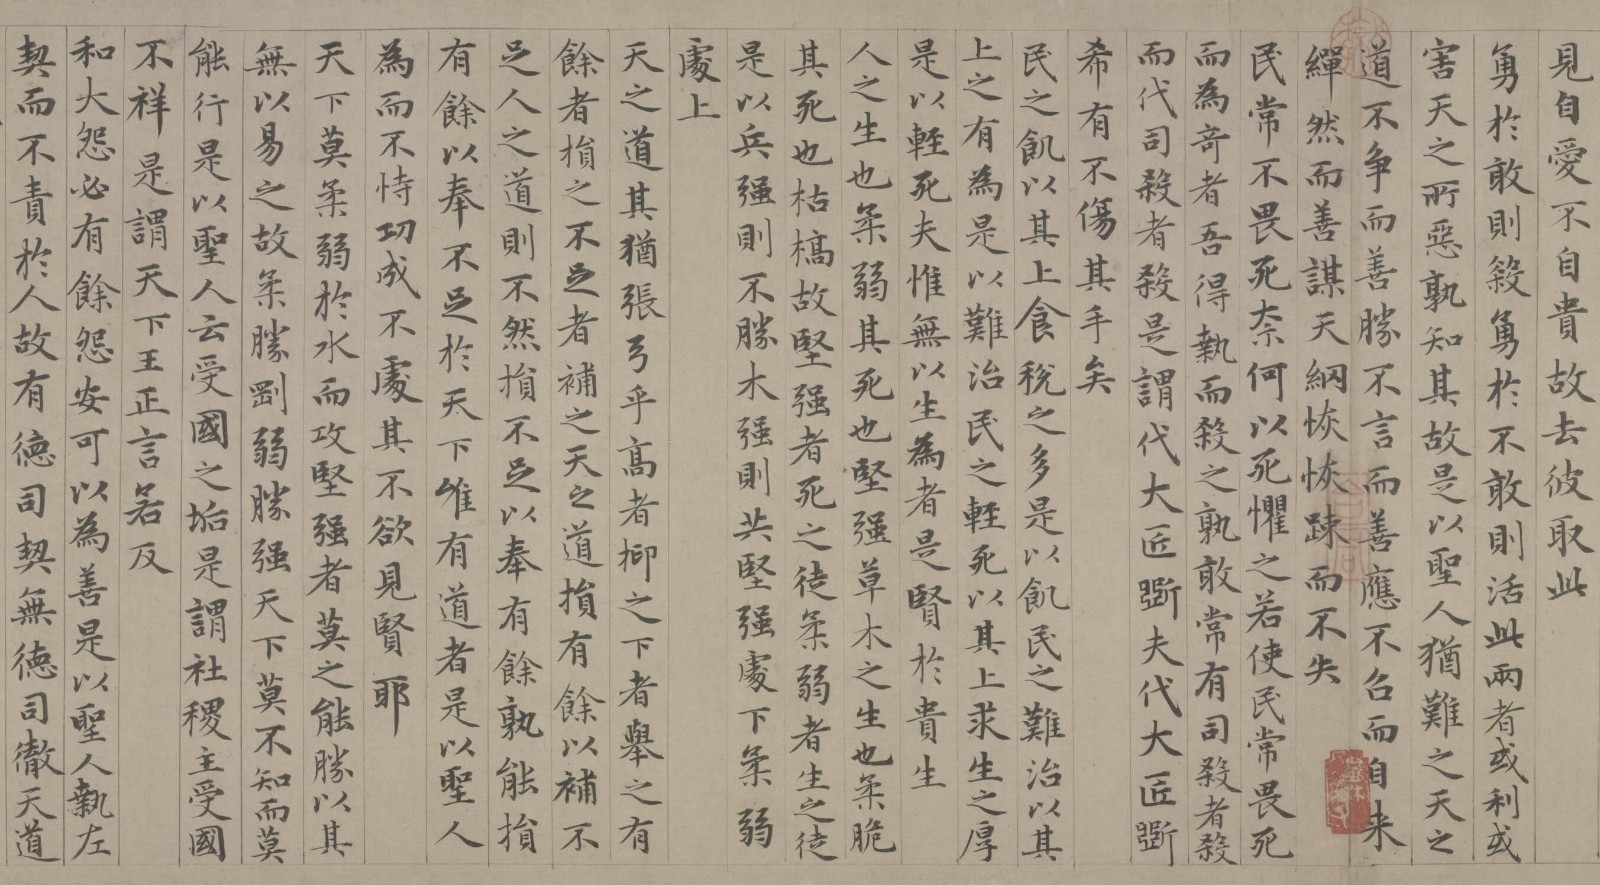 見自愛不自貴故去彼取此
勇於敢則殺勇於不敢則活此兩者或利或
害天之所惡孰知其故是以聖人猶難之天之
道不争而善勝不言而善應不召而自来
繟然而善謀天網恢恢踈而不失
民常不畏死柰何以死懼之若使民常畏死
而為竒者吾得執而殺之孰敢常有司殺者殺
而代司殺者殺是謂代大匠斵夫代大匠斵
希有不傷其手矣
民之飢以其上食稅之多是以飢民之難治以其
上之有為是以難治民之輕死以其上求生之厚
是以輕死夫惟無以生為者是賢於貴生
人之生也柔弱其死也堅强草木之生也柔脆
其死也枯槁故堅强者死之徒柔弱者生之徒
是以兵强則不勝木强則共堅强處下柔弱
處上
天之道其猶張弓乎高者抑之下者舉之有
餘者損之不足者補之天之道損有餘以補不
足人之道則不然損不足以奉有餘孰能損
有餘以奉不足於天下唯有道者是以聖人
為而不恃功成不處其不欲見賢耶
天下莫柔弱於水而攻堅强者莫之能勝以其
無以易之故柔勝剛弱勝强天下莫不知而莫
能行是以聖人云受國之垢是謂社稷主受國
不祥是謂天下王正言若反
和大怨必有餘怨安可以為善是以聖人執左
契而不責於人故有德司契無德司徹天道